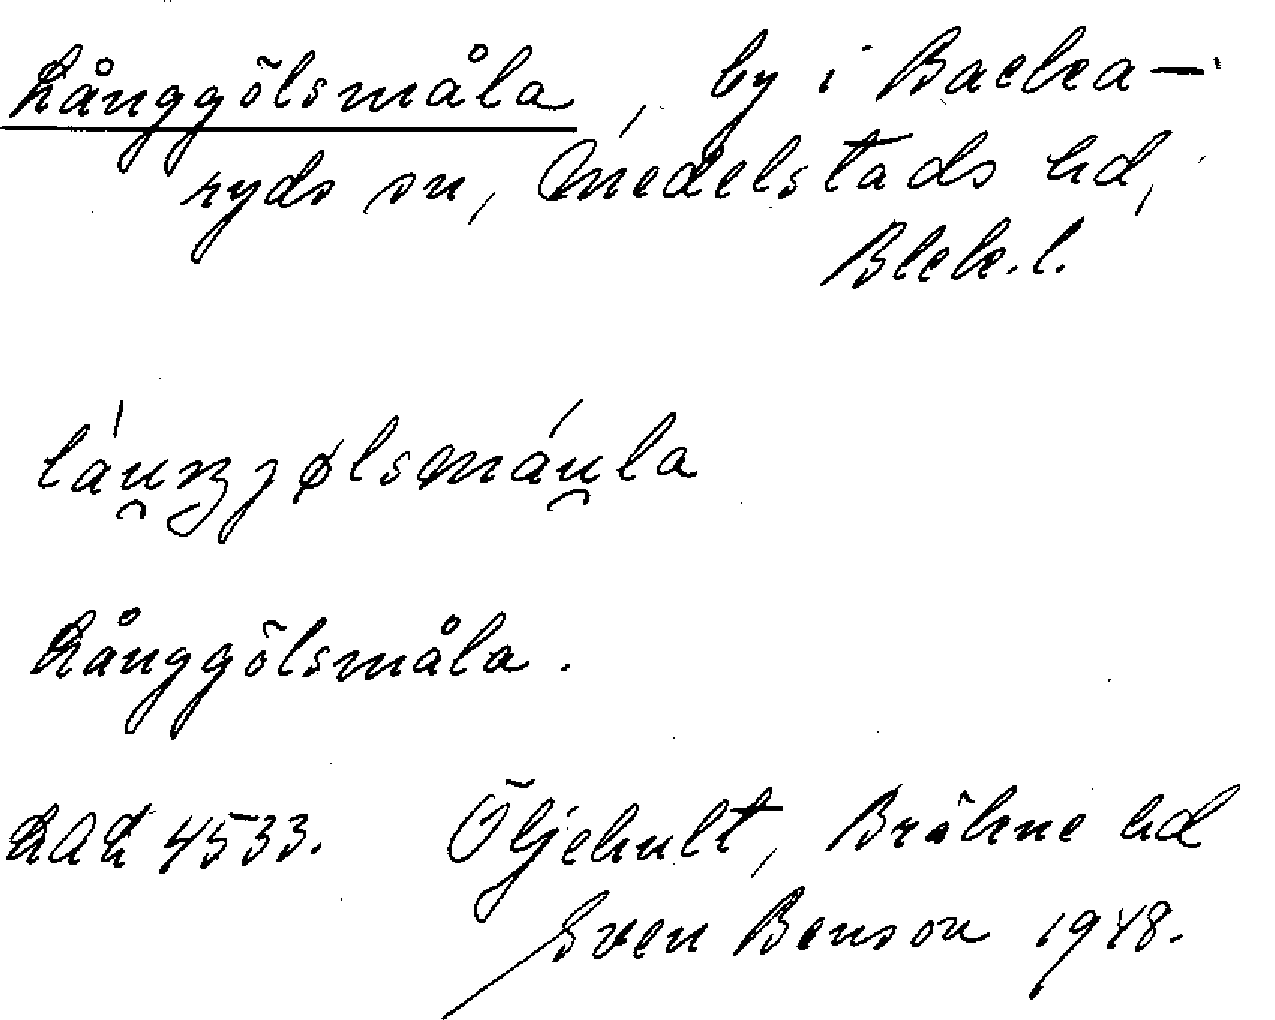 Långgölsmåla, by i Backa-
ryds sn, Medelstads hd,
Blek.l.
Långgölsmåla.
4533. Öljehult, Bräkne hd
Sven Benson 1948.